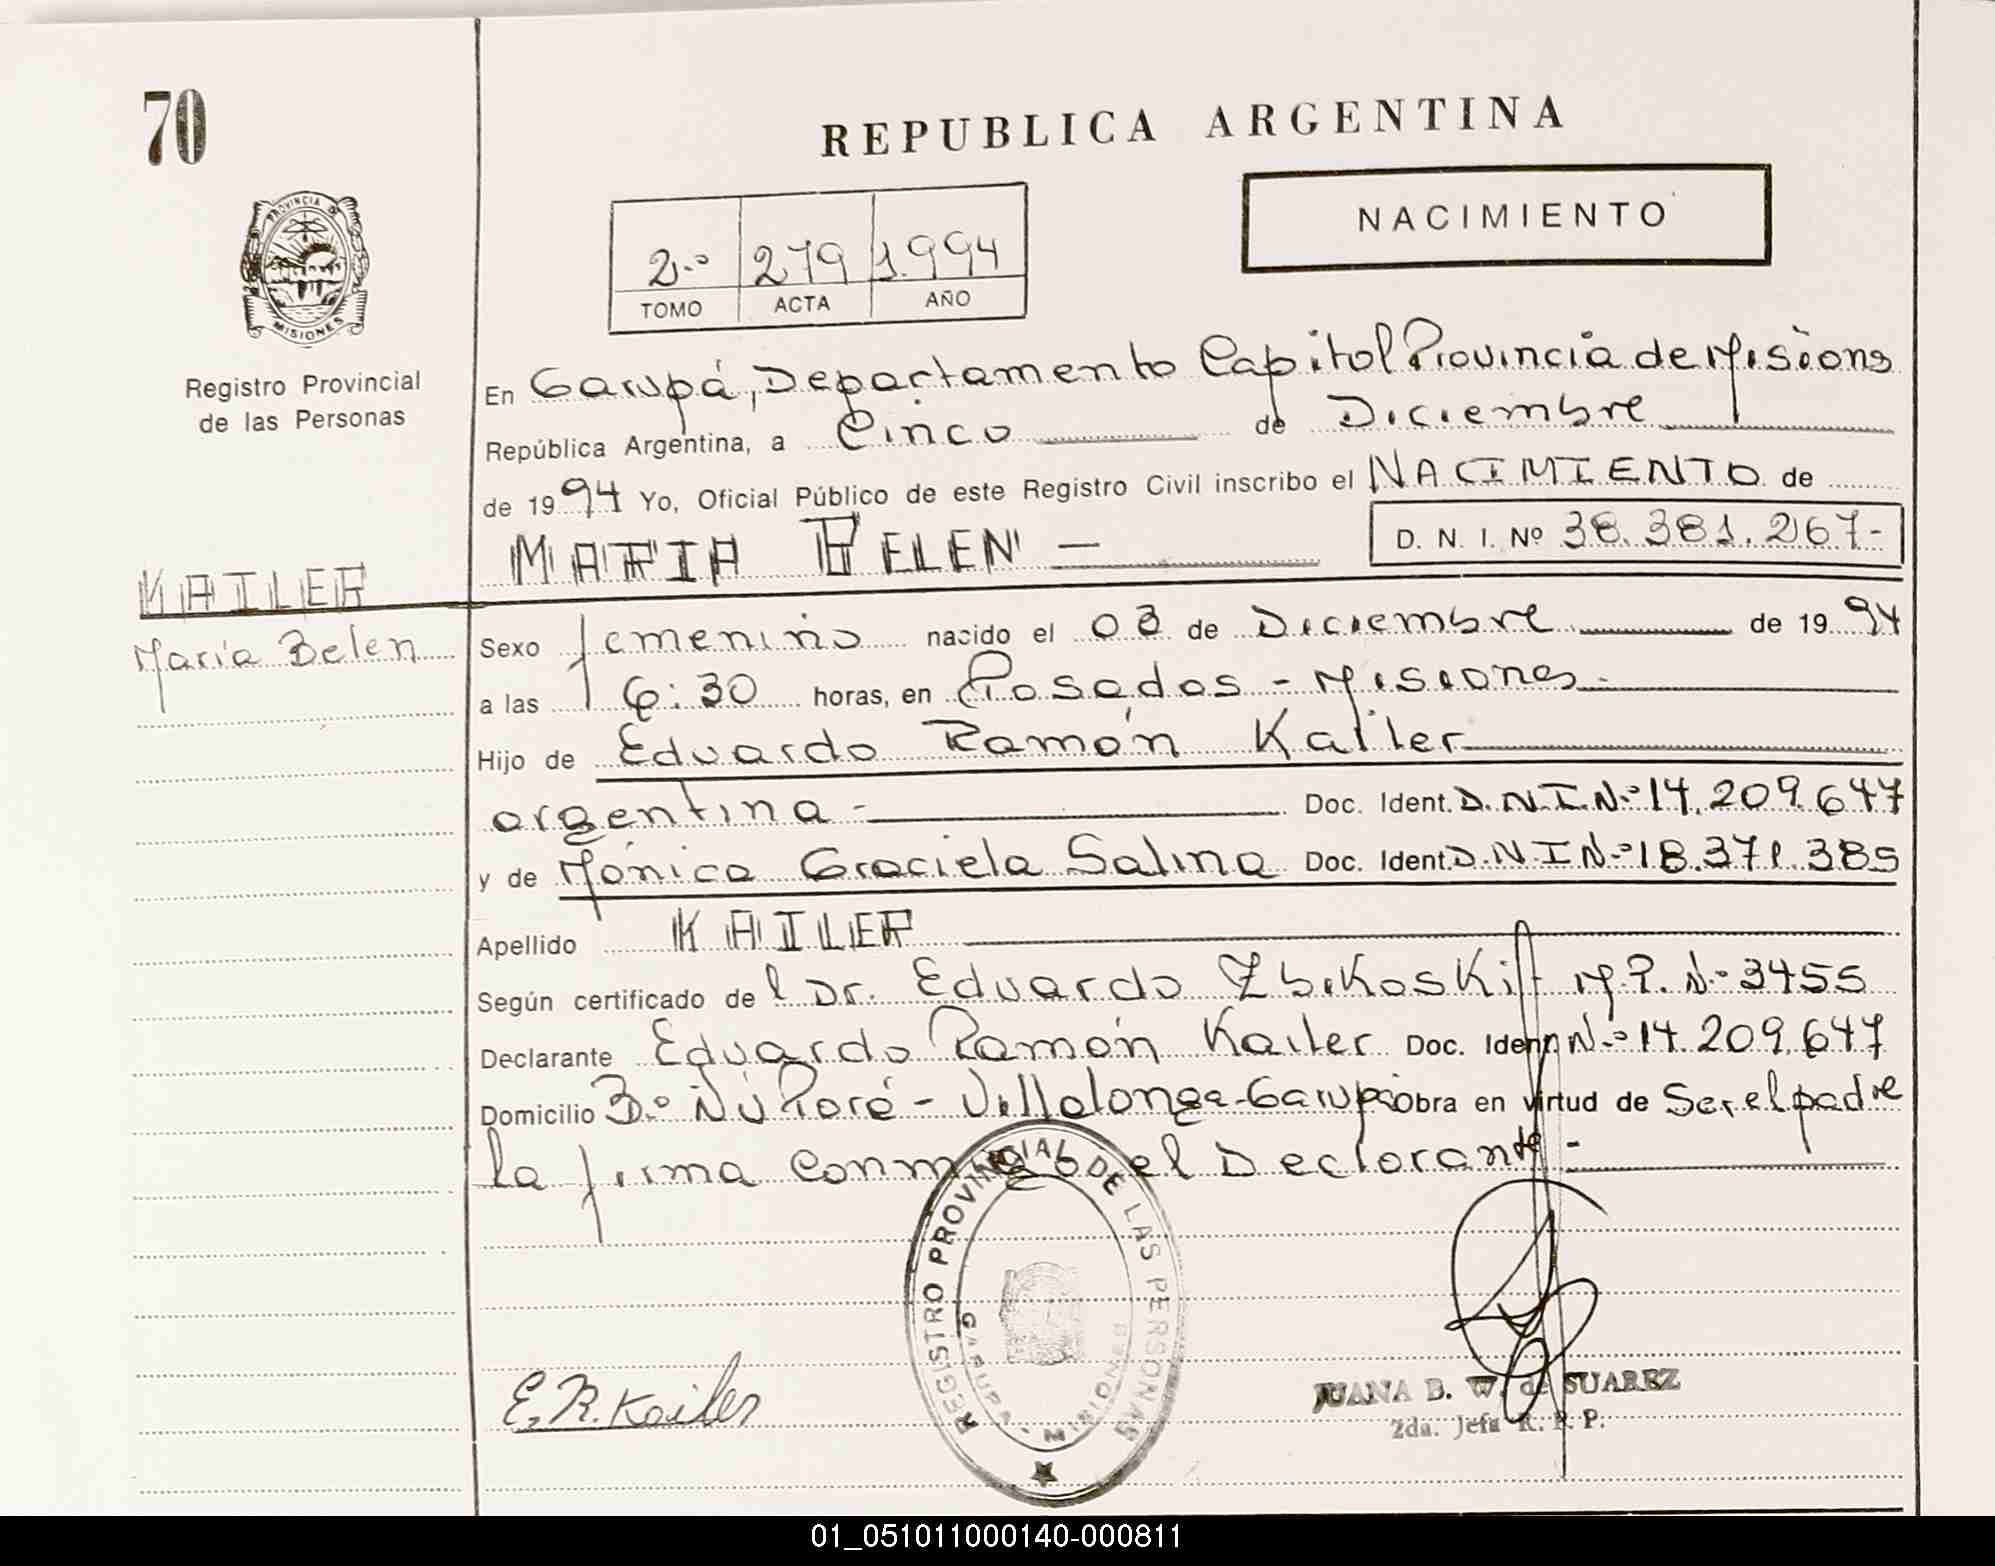 70
REPUBLICA ARGENTINA
NACIMIENTO
2.º 279 1.994
TOMO ACTA AÑO
PROVINCIA DE MISIONES
Registro Provincial
de las Personas
En Garupá, Departamento Capitol Provincia de Misions
República Argentina, a Cinco de Diciembre
de 1994 Yo, Oficial Público de este Registro Civil inscribo el NACIMIENTO de
MARIA BELEN - D. N. I. Nº 38.381.267-
KAILER
Maria Belen
Sexo femenino nacido el 03 de Diciembre de 1994
a las 6:30 horas, en Posadas - Misiones -
Hijo de Eduardo Ramón Kailer
argentina - Doc. Ident. D.N.I.N.º 14.209.647
y de Mónica Graciela Salina Doc. Ident. D.N.I.N.º 18.371.385
Apellido KAILER
Según certificado del Dr. Eduardo Zbikoski M.P. N.º 3455
Declarante Eduardo Ramón Kailer Doc. Iden N.º 14.209.647
Domicilio B.º Ñú Poré - Villalonga - Garupá Obra en virtud de Ser el padre
la firma conmigo el Declorante -
REGISTRO PROVINCIAL DE LAS PERSONAS
GARUPA - MISIONES
E. R. Kailer
JUANA B. W. de SUAREZ
2da. Jefa R. P. P.
01_051011000140-000811